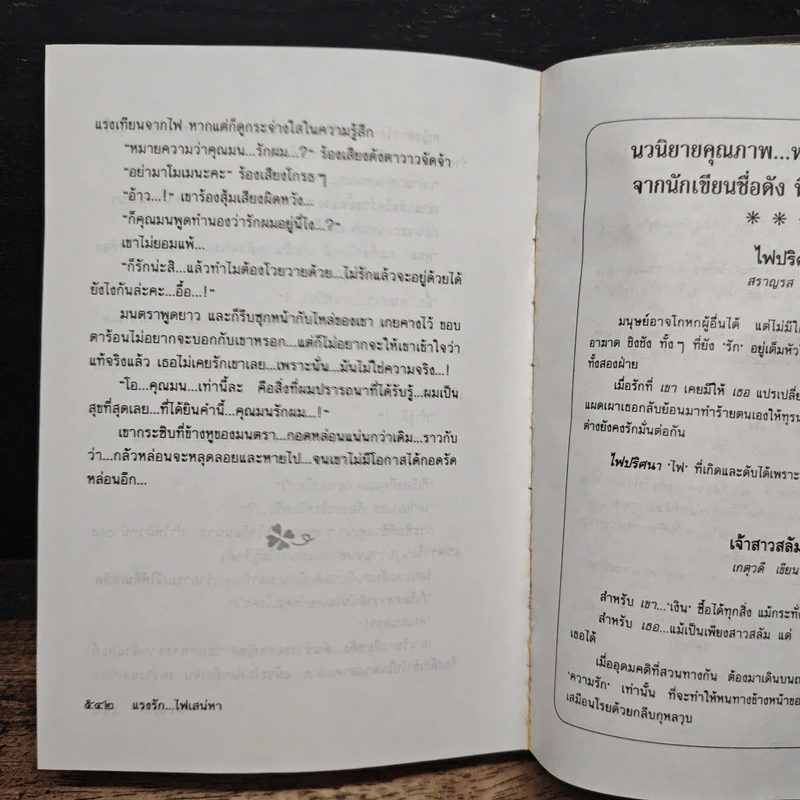 แรงเทียนจากไฟ หากแต่ก็ดูกระจ่างใสในความรู้สึก
"หมายความว่าคุณมน...รักผม...?" ร้องเสียงดังตาวาวจัดจ้า
"อย่ามาโมเมนะคะ" ร้องเสียงโกรธๆ
"อ้าว...!" เขาร้องสุ้มเสียงผิดหวัง...
"ก็คุณมนพูดทำนองว่ารักผมอยู่นี่ไง...?"
เขาไม่ยอมแพ้...
"ก็รักน่ะสิ...แล้วทำไมต้องโวยวายด้วย...ไม่รักแล้วจะอยู่ด้วยได้
ยังไงกันล่ะคะ...อื้อ...!"
มนตราพูดยาว และก็รีบซุกหน้ากับไหล่ของเขา เกยคางไว้ ขอบ
ตาร้อนไม่อยากจะบอกกับเขาหรอก...แต่ก็ไม่อยากจะให้เขาเข้าใจว่า
แท้จริงแล้ว เธอไม่เคยรักเขาเลย...เพราะนั่น...มันไม่ใช่ความจริง...!
"โอ...คุณมน...เท่านี้ละ คือสิ่งที่ผมปรารถนาที่ได้รับรู้...ผมเป็น
สุขที่สุดเลย...ที่ได้ยินคำนี้...คุณมนรักผม...!"
เขากระซิบที่ข้างหูของมนตรา...กอดหล่อนแน่นกว่าเดิม...ราวกับ
ว่า...กลัวหล่อนจะหลุดลอยและหายไป...จนเขาไม่มีโอกาสได้กอดรัด
หล่อนอีก...
๕๔๒ แรงรัก...ไฟเสน่หา
นวนิยายคุณภาพ...
จากนักเขียนชื่อดัง
* *
ไฟปริศ
สราญรส
มนุษย์อาจโกหกผู้อื่นได้ แต่ไม่มี
อาฆาต ชิงชัง ทั้งๆ ที่ยัง 'รัก' อยู่เต็มหัว
ทั้งสองฝ่าย
เมื่อรักที่ เขา เคยมีให้ เธอ แปรเปลี่ย
แผดเผาเธอกลับย้อนมาทำร้ายตนเองให้ทุรน
ต่างยังคงรักมั่นต่อกัน
ไฟปริศนา 'ไฟ' ที่เกิดและดับได้เพราะ
เจ้าสาวสลัม
เกตุวดี เขียน
สำหรับ เขา...'เงิน' ซื้อได้ทุกสิ่ง แม้กระทั่ง
สำหรับ เธอ...แม้เป็นเพียงสาวสลัม แต่
เธอได้
เมื่ออุดมคติที่สวนทางกัน ต้องมาเดินบนถ
'ความรัก' เท่านั้น ที่จะทำให้หนทางข้างหน้าขอ
เสมือนโรยด้วยกลีบกุหลาบ